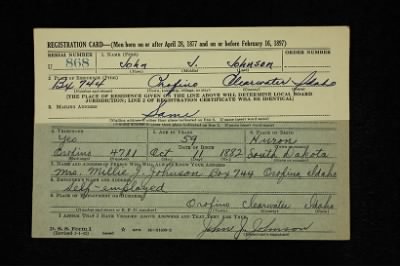 REGISTRATION CARD—(Men born on or after April 28, 1877 and on or before February 16, 1897)
SERIAL NUMBER 1. NAME (Print)
U 868 John J. Johnson
(First) (Middle) (Last)
2. PLACE OF RESIDENCE (Print)
Bx 744 Orofino Clearwater Idaho
[THE PLACE OF RESIDENCE GIVEN ON THE LINE ABOVE WILL DETERMINE LOCAL BOARD
JURISDICTION; LINE 2 OF REGISTRATION CERTIFICATE WILL BE IDENTICAL]
3. MAILING ADDRESS
Same
4. TELEPHONE 5. AGE IN YEARS 6. PLACE OF BIRTH
Yes 59 Huron
DATE OF BIRTH
Orofino 4781 Oct 11 1882 South Dakota
7. NAME AND ADDRESS OF PERSON WHO WILL ALWAYS KNOW YOUR ADDRESS
Mrs. Millie J. Johnson Box 744 Orofino Idaho
8. EMPLOYER'S NAME AND ADDRESS
Self-employed
9. PLACE OF EMPLOYMENT OR BUSINESS
Orofino Clearwater Idaho
I AFFIRM THAT I HAVE VERIFIED ABOVE ANSWERS AND THAT THEY ARE TRUE.
D. S. S. Form 1 John J. Johnson